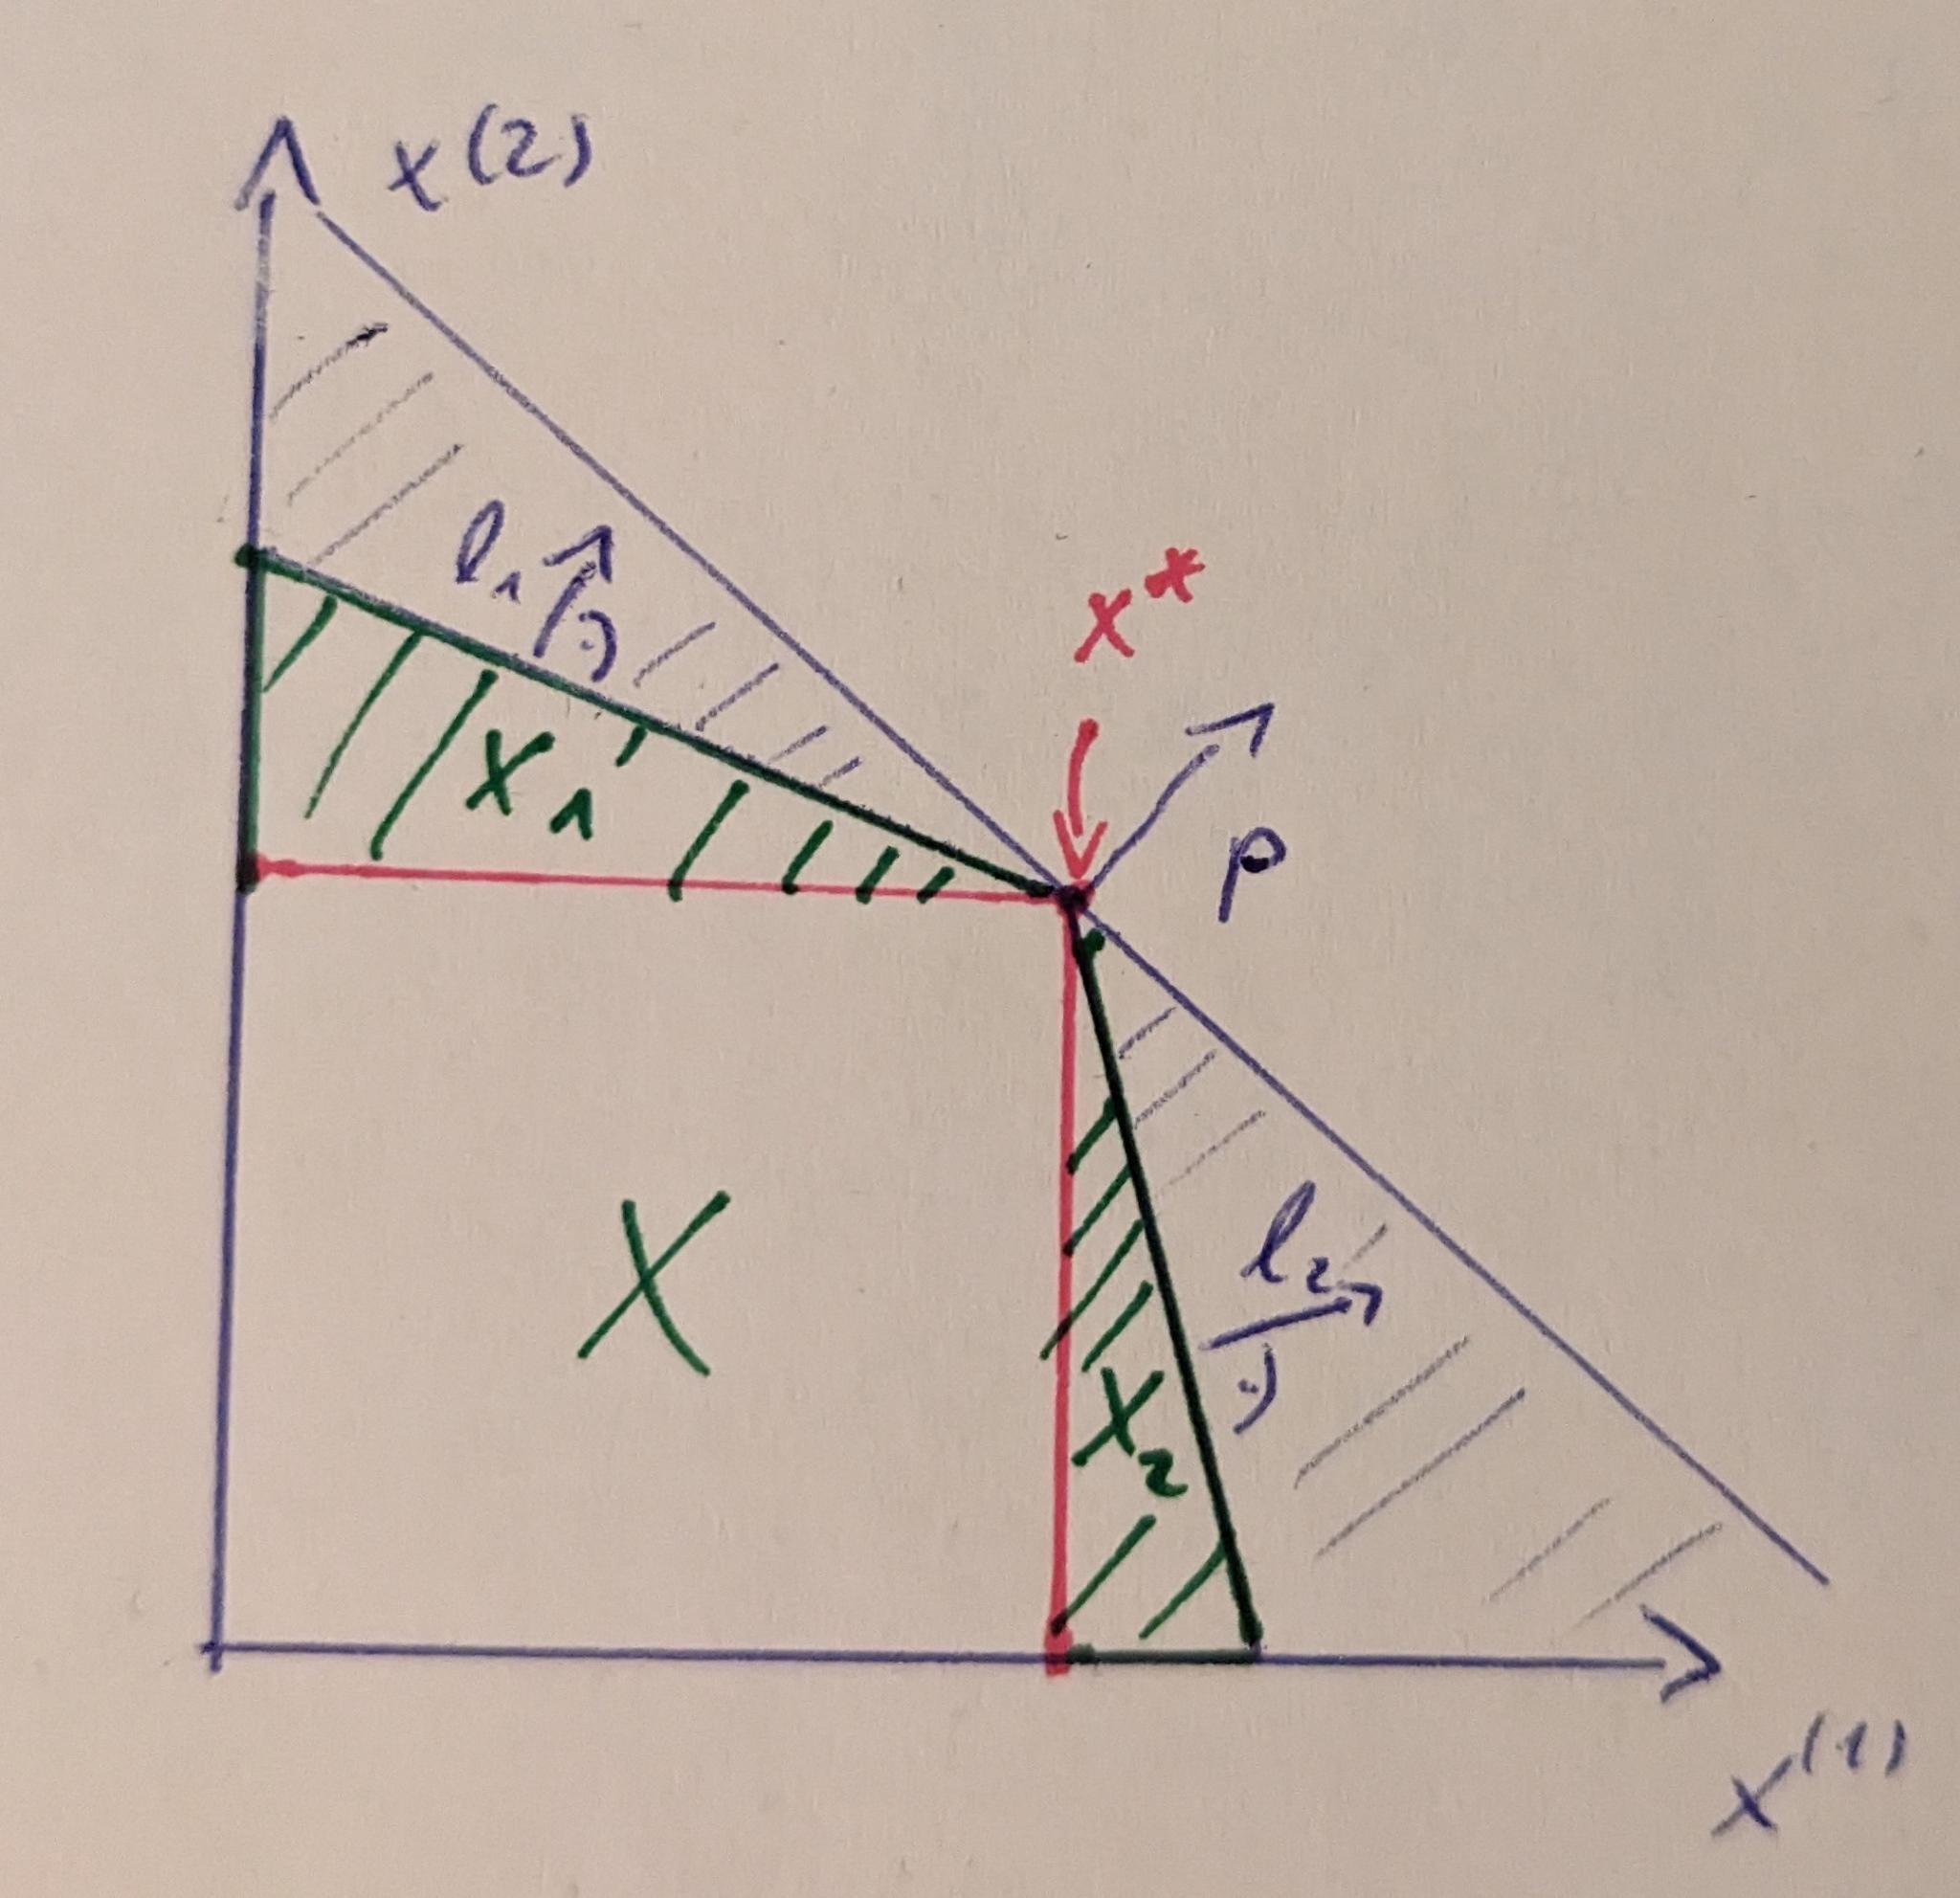 x(2)
l₁
x*
X₁
p
X
l₂
X₂
x(1)